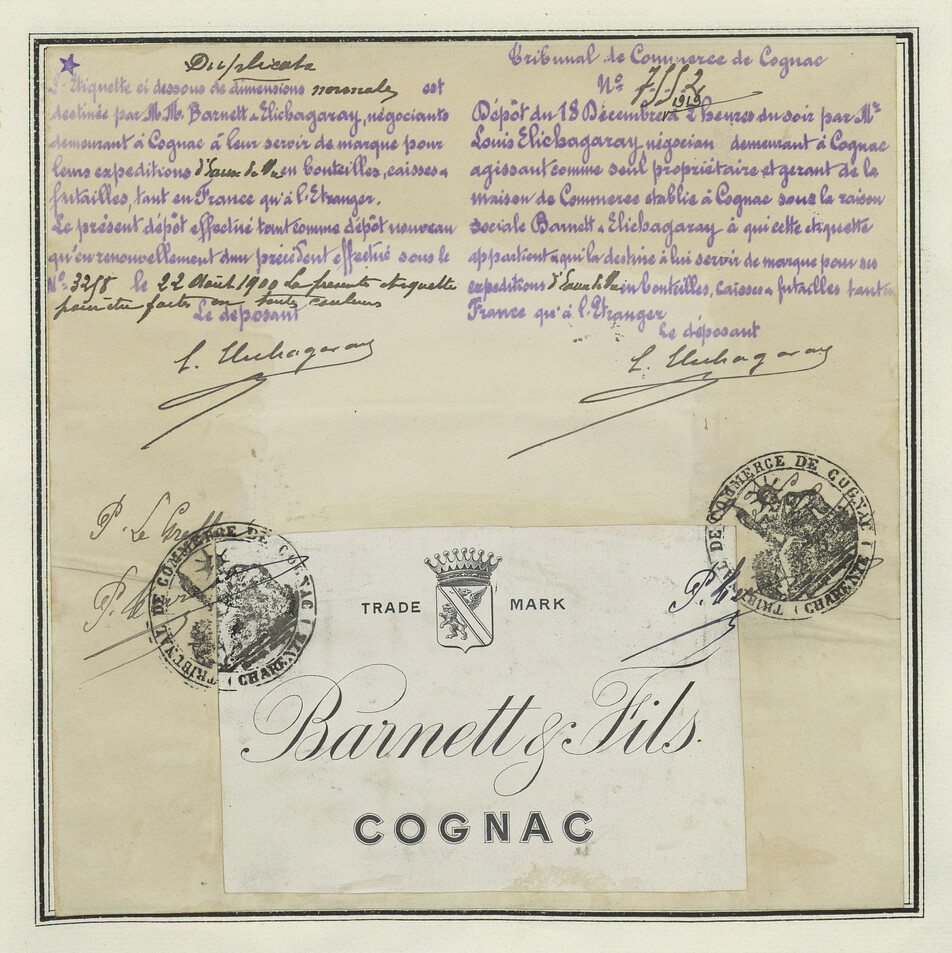 Duplicata
L'Etiquette ci dessous de dimensions normales est
destinée par M.M. Barnett & Elichagaray, négociants
demeurant à Cognac à leur servir de marque pour
leurs expeditions d'Eaux de Vie en bouteilles, caisses &
futailles, tant en France qu'à l'Etranger.
Le présent dépôt effectué tant comme dépôt nouveau
qu'en renouvellement d'un précédent effectué sous le
N° 3258 le 22 Août 1900 La présente étiquette
pourra être faite en toute couleurs
Le déposant
L. Elichagaray
Tribunal de Commerce de Cognac
N° 7552
1918
Dépôt du 18 Décembre à 2 heures du soir par Mr
Louis Elichagaray négocian demeurant à Cognac
agissant comme seul propriétaire et gerant de la
maison de Commerce établie à Cognac sous la raison
sociale Barnett & Elichagaray à qui cette étiquette
appartient & qui la destine à lui servir de marque pour ses
expeditions d'Eaux de Vie en bouteilles, caisses & futailles tant en
France qu'à l'Etranger
Le déposant
L. Elichagaray
P. Le
TRIBUNAL DE COMMERCE DE COGNAC
(CHARENTE)
TRIBUNAL DE COMMERCE DE COGNAC
(CHARENTE)
TRADE MARK
Barnett & Fils.
COGNAC